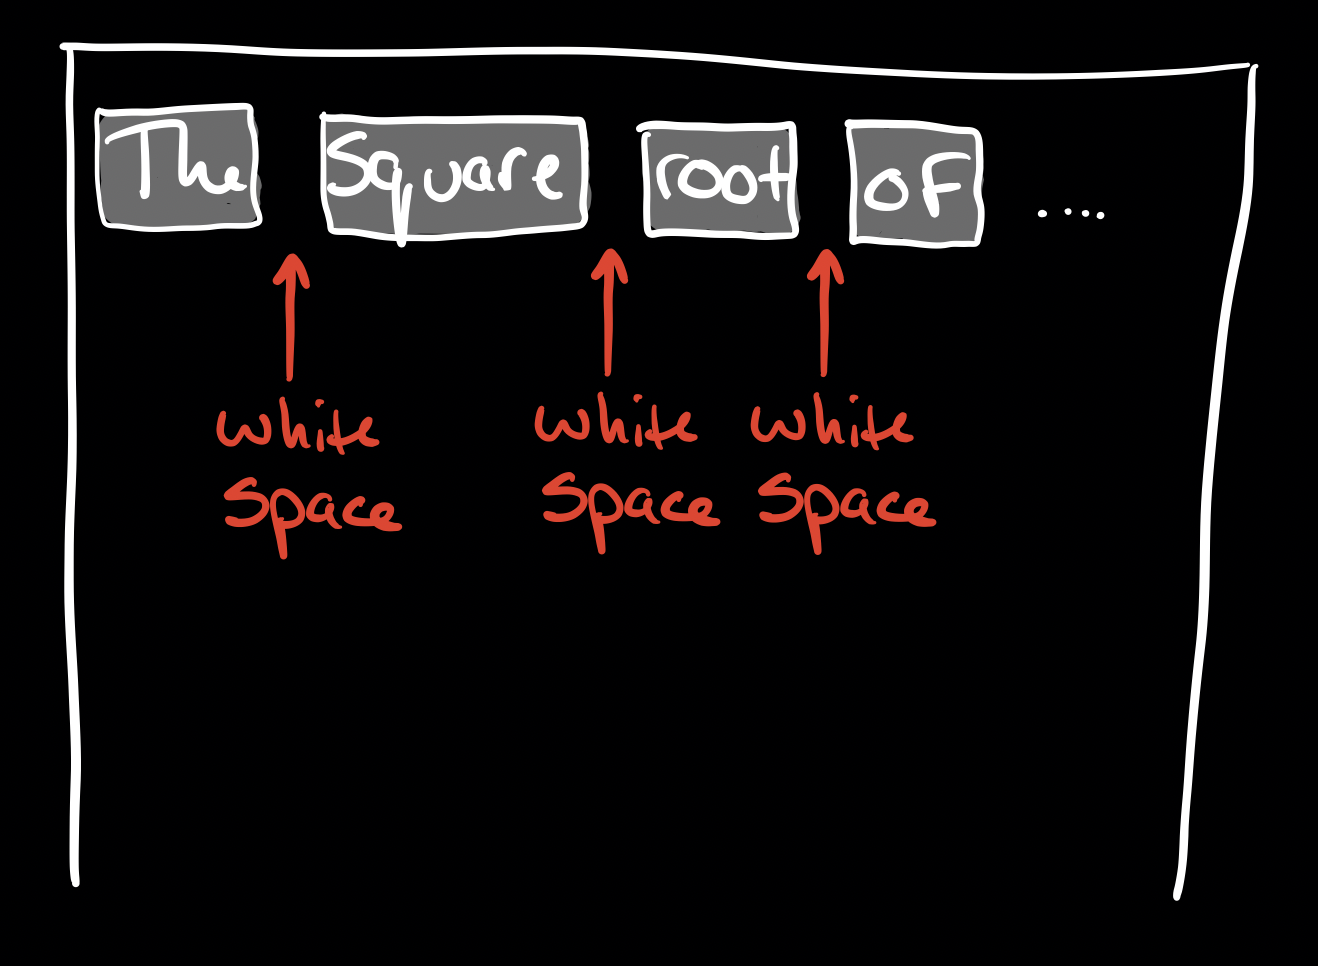 The Square root of ....
white white white
space space space